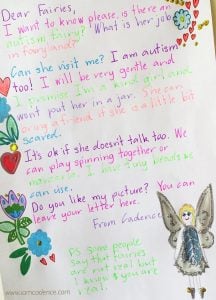 Dear Fairies,
I want to know please, is there an
autism fairy? What is her job
in fairyland?
Can she visit me? I am autism
too! I will be very gentle and
I promise I'm a kind girl and
wont put her in a jar. She can
bring a friend if she is a little bit
scared.
It's ok if she doesn't talk too. We
can play spinning together or
I have tiny beads we
can use.
Do you like my picture? You can
leave your letter here.
From Cadence
PS Some people
say that fairies
are not real but
I know you are
real.
www.iamcadence.com